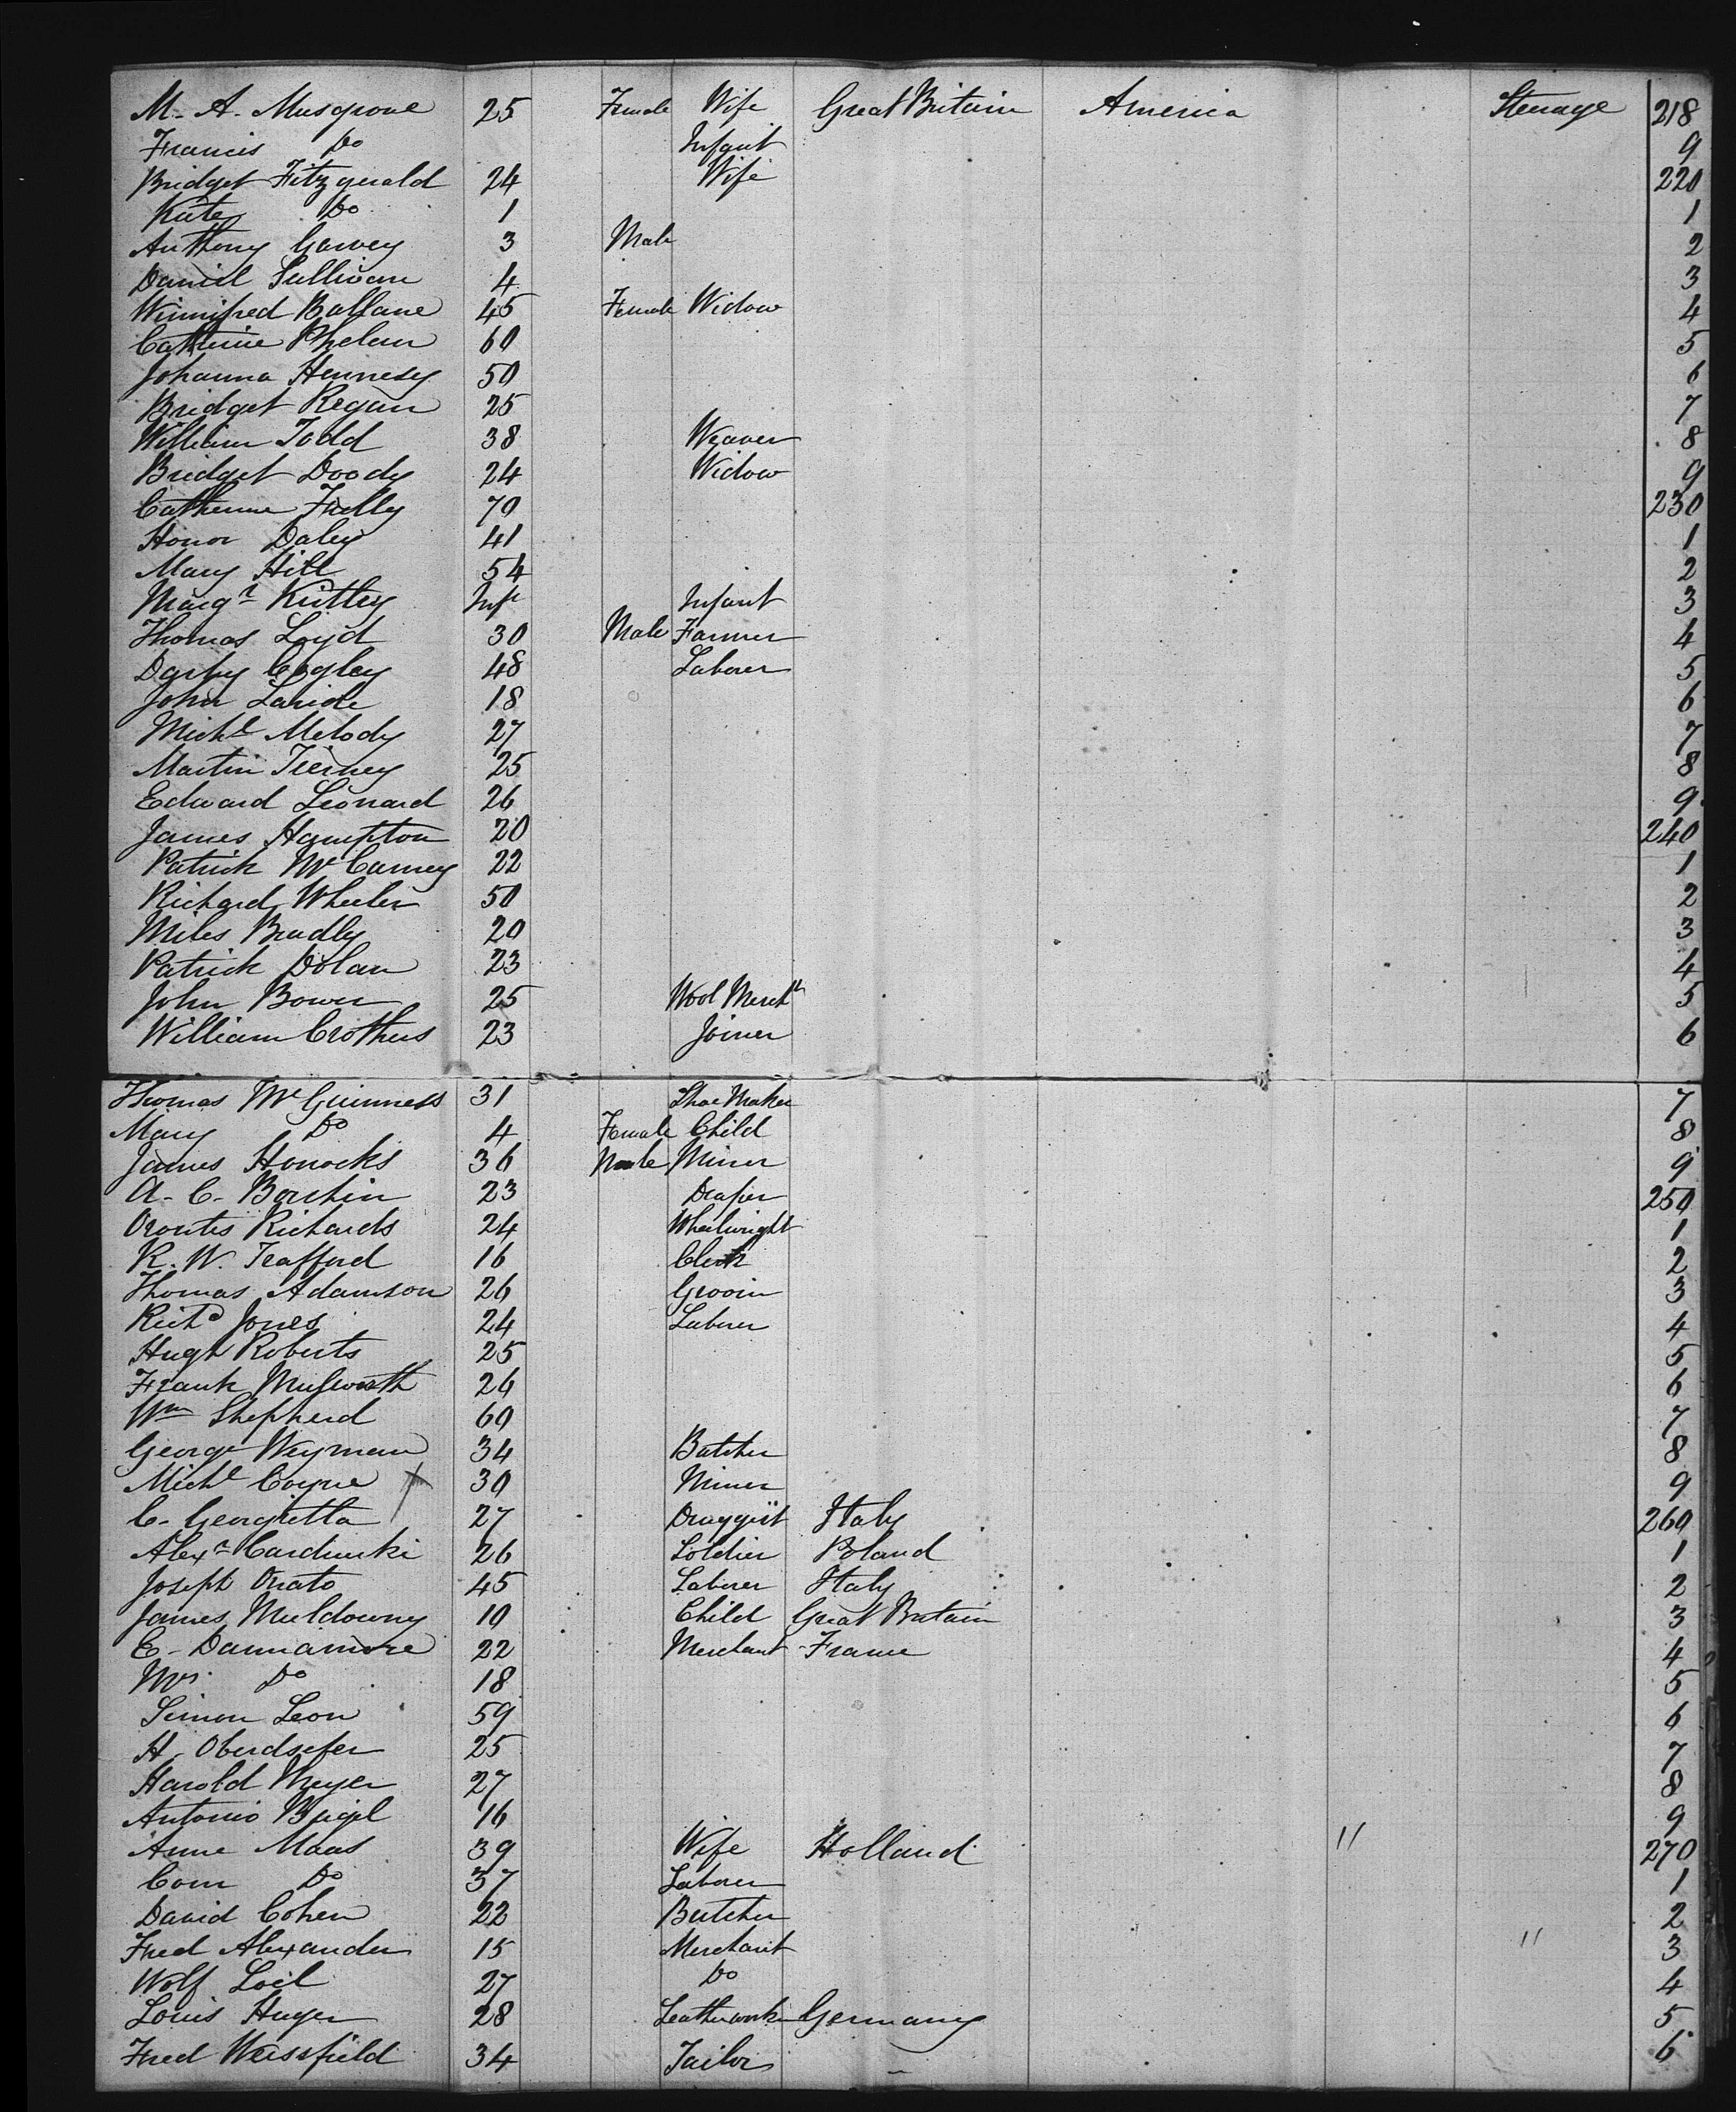 M. A. Musgrove 25 Female Wife Great Britain America Steerage 218
Francis Do Infant 9
Bridget Fitzgerald 24 Wife 220
Kate Do 1 1
Anthony Garvey 3 Male 2
Daniel Sullivan 4 3
Winnifred Ballane 45 Female Widow 4
Catherine Phelan 60 5
Johanna Hennesy 50 6
Bridget Regan 25 7
William Todd 38 Weaver 8
Bridget Doody 24 Widow 9
Catherine 70 230
Honor Daley 41 1
Mary Hill 54 2
Margt Kittley Inft Infant 3
Thomas Loyd 30 Male Farmer 4
Darby Cogley 48 Laborer 5
John 18 6
Michl Melody 27 7
Martin Tierney 25 8
Edward Leonard 26 9
James Hampton 20 240
Patrick McCarney 22 1
Richard Wheeler 50 2
Miles Bradly 20 3
Patrick Dolan 23 4
John Bower 25 Wool Merch 5
William Crothers 23 Joiner 6
Thomas McGuinness 31 Shoe Maker 7
Mary Do 4 Female Child 8
James Horrocks 36 Male Miner 9
A. C. 23 Draper 250
Orontes Richards 24 Wheelwright 1
R. W. Trafford 16 Clerk 2
Thomas Adamson 26 Groom 3
Richd Jones 24 Laborer 4
Hugh Roberts 25 5
Frank 26 6
Wm Shepherd 60 7
George Weyman 34 Butcher 8
Michl Coyne X 30 Miner 9
C. Georgietta 27 Druggist Italy 260
Alexr 26 Soldier Poland 1
Joseph Orato 45 Laborer Italy 2
James Muldowny 10 Child Great Britain 3
E. Dannamore 22 Merchant France 4
Mrs Do 18 5
Simon Leon 59 6
H. Oberdsefer 25 7
Harold Meyer 27 8
Antonio 16 9
Anne Maas 39 Wife Holland " 270
Corn Do 37 Laborer 1
David Cohen 22 Butcher 2
Fred Alexander 15 Merchant " 3
Wolf Loil 27 Do 4
Louis Huger 28 Leatherworker Germany 5
Fred Weissfield 34 Tailor 6